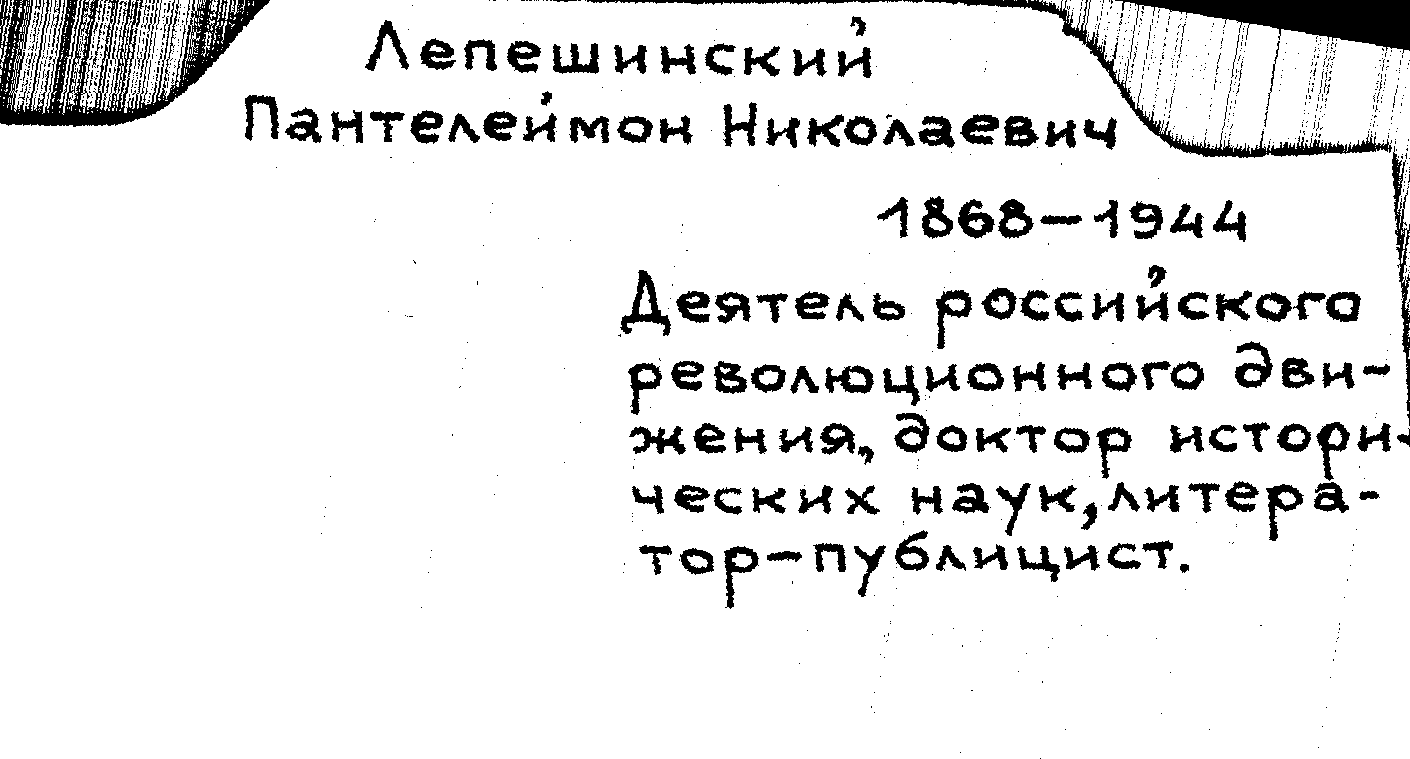 Лепешинский
Пантелеймон Николаевич
1868-1944
Деятель российского
революционного дви-
жения, доктор истори-
ческих наук, литера-
тор-публицист.